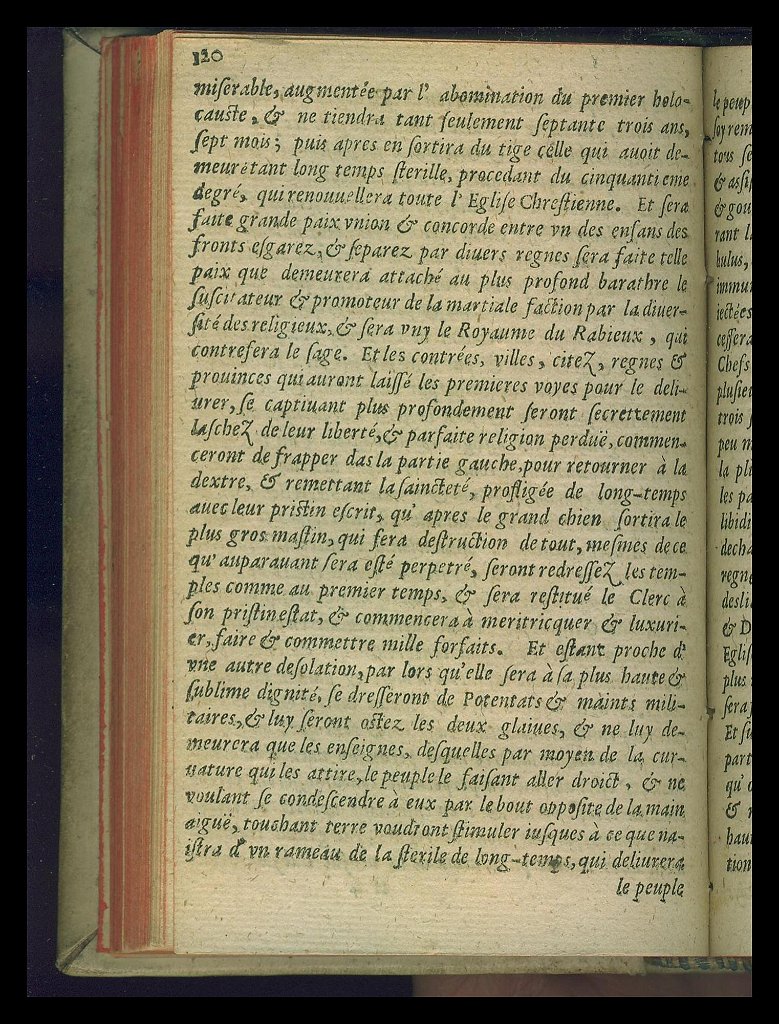 120
miserable, augmentée par l' abomination du premier holo-
causte, & ne tiendra tant seulement septante trois ans,
sept mois; puis apres en sortira du tige celle qui auoit de-
meuré tant long temps sterille, procedant du cinquantieme
degré, qui renouuellera toute l' Eglise Chrestienne. Et sera
faite grande paix vnion & concorde entre vn des enfans des
fronts esgarez, & separez par diuers regnes sera faite telle
paix que demeurera attaché au plus profond barathre le
suscitateur & promoteur de la martiale faction par la diuer-
sité des religieux, & sera vny le Royaume du Rabieux, qui
contrefera le sage. Et les contrées, villes, citez, regnes &
prouinces qui auront laissé les premieres voyes pour le deli-
urer, se captiuant plus profondement seront secrettement
laschez de leur liberté, & parfaite religion perduë, commen-
ceront de frapper das la partie gauche, pour retourner à la
dextre, & remettant la saincteté, profligée de long-temps
auec leur pristin escrit, qu' apres le grand chien sortira le
plus gros mastin, qui fera destruction de tout, mesmes de ce
qu' auparauant sera esté perpetré, seront redressez les tem-
ples comme au premier temps, & sera restitué le Clerc à
son pristin estat, & commencera à meritricquer & luxuri-
er, faire & commettre mille forfaits. Et estant proche d'
vne autre desolation, par lors qu'elle sera à sa plus haute &
sublime dignité, se dresseront de Potentats & maints mili-
taires, & luy seront ostez les deux glaiues, & ne luy de-
meurera que les enseignes, desquelles par moyen de la cur-
uature qui les attire, le peuple le faisant aller droict, & ne
voulant se condescendre à eux par le bout opposite de la main
aiguë, touchant terre voudront stimuler iusques à ce que na-
istra d' vn rameau de la sterile de long-temps, qui deliurera
le peuple
le peup
soy rem
tous se
& assis
& gou
rant l
bulus,
immun
iectées
cessera
Chefs
plusieu
trois
peu m
la pl
les pa
libidi
decha
regne
desli
& D
Eglis
plus
sera
Et su
part
qu'
&
hau
tion